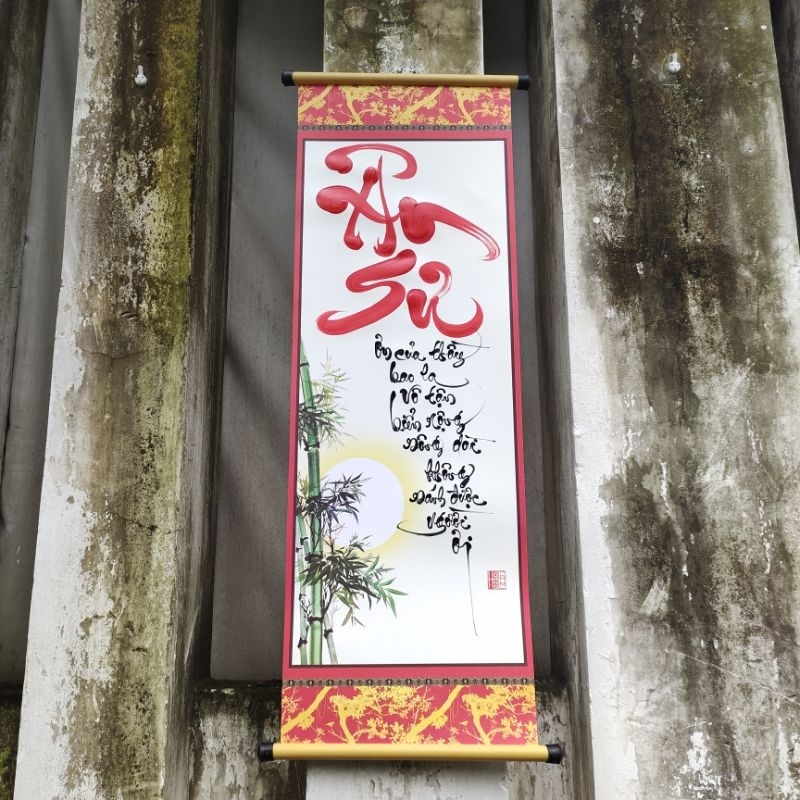 Ân
Sư
ơn của thầy
bao la
vô tận
biển rộng
sông dài
không
sánh được
người
ơi